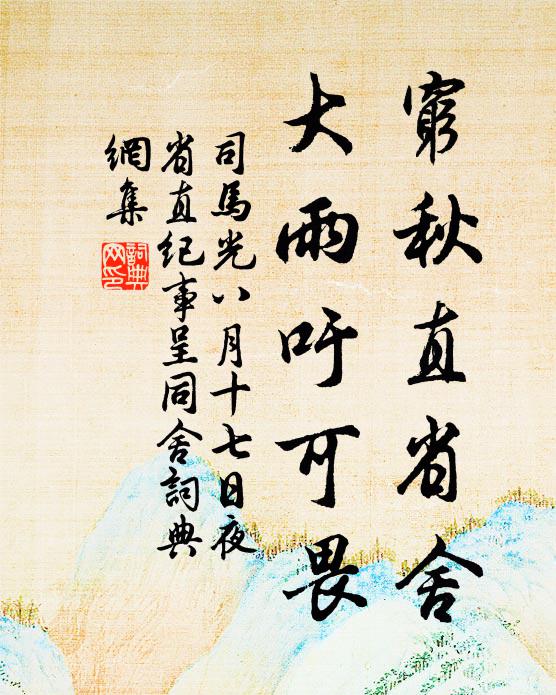 窮秋直省舍
大雨吁可畏
司馬光八月十七日夜
省直紀事呈同舍詞典
網集
詞典網印